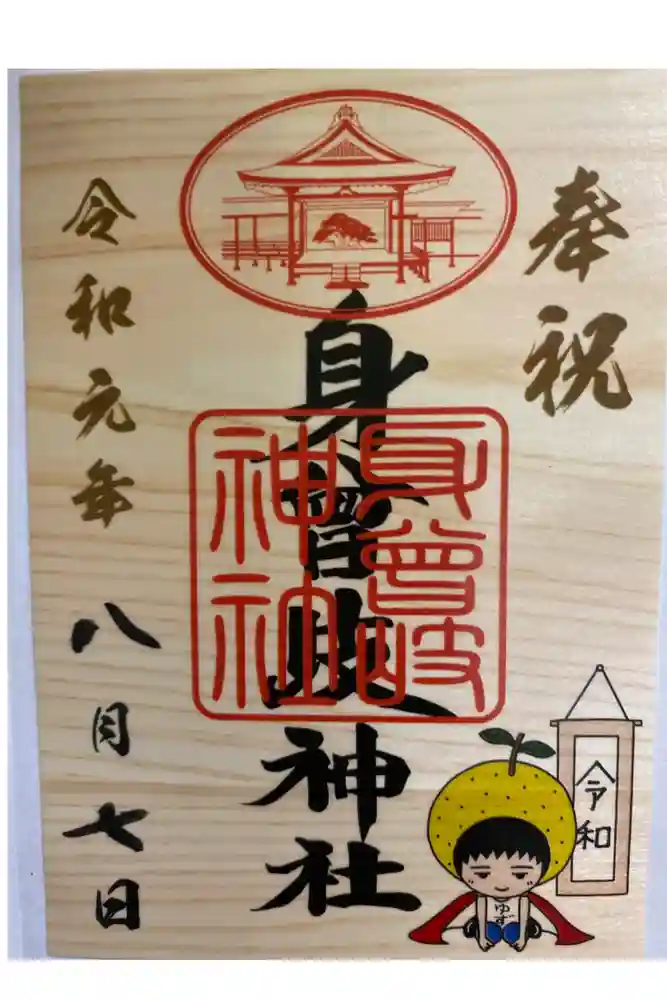 奉祝
身曾岐神社
身曾岐
神社
令和元年
八月七日
令和
ゆず